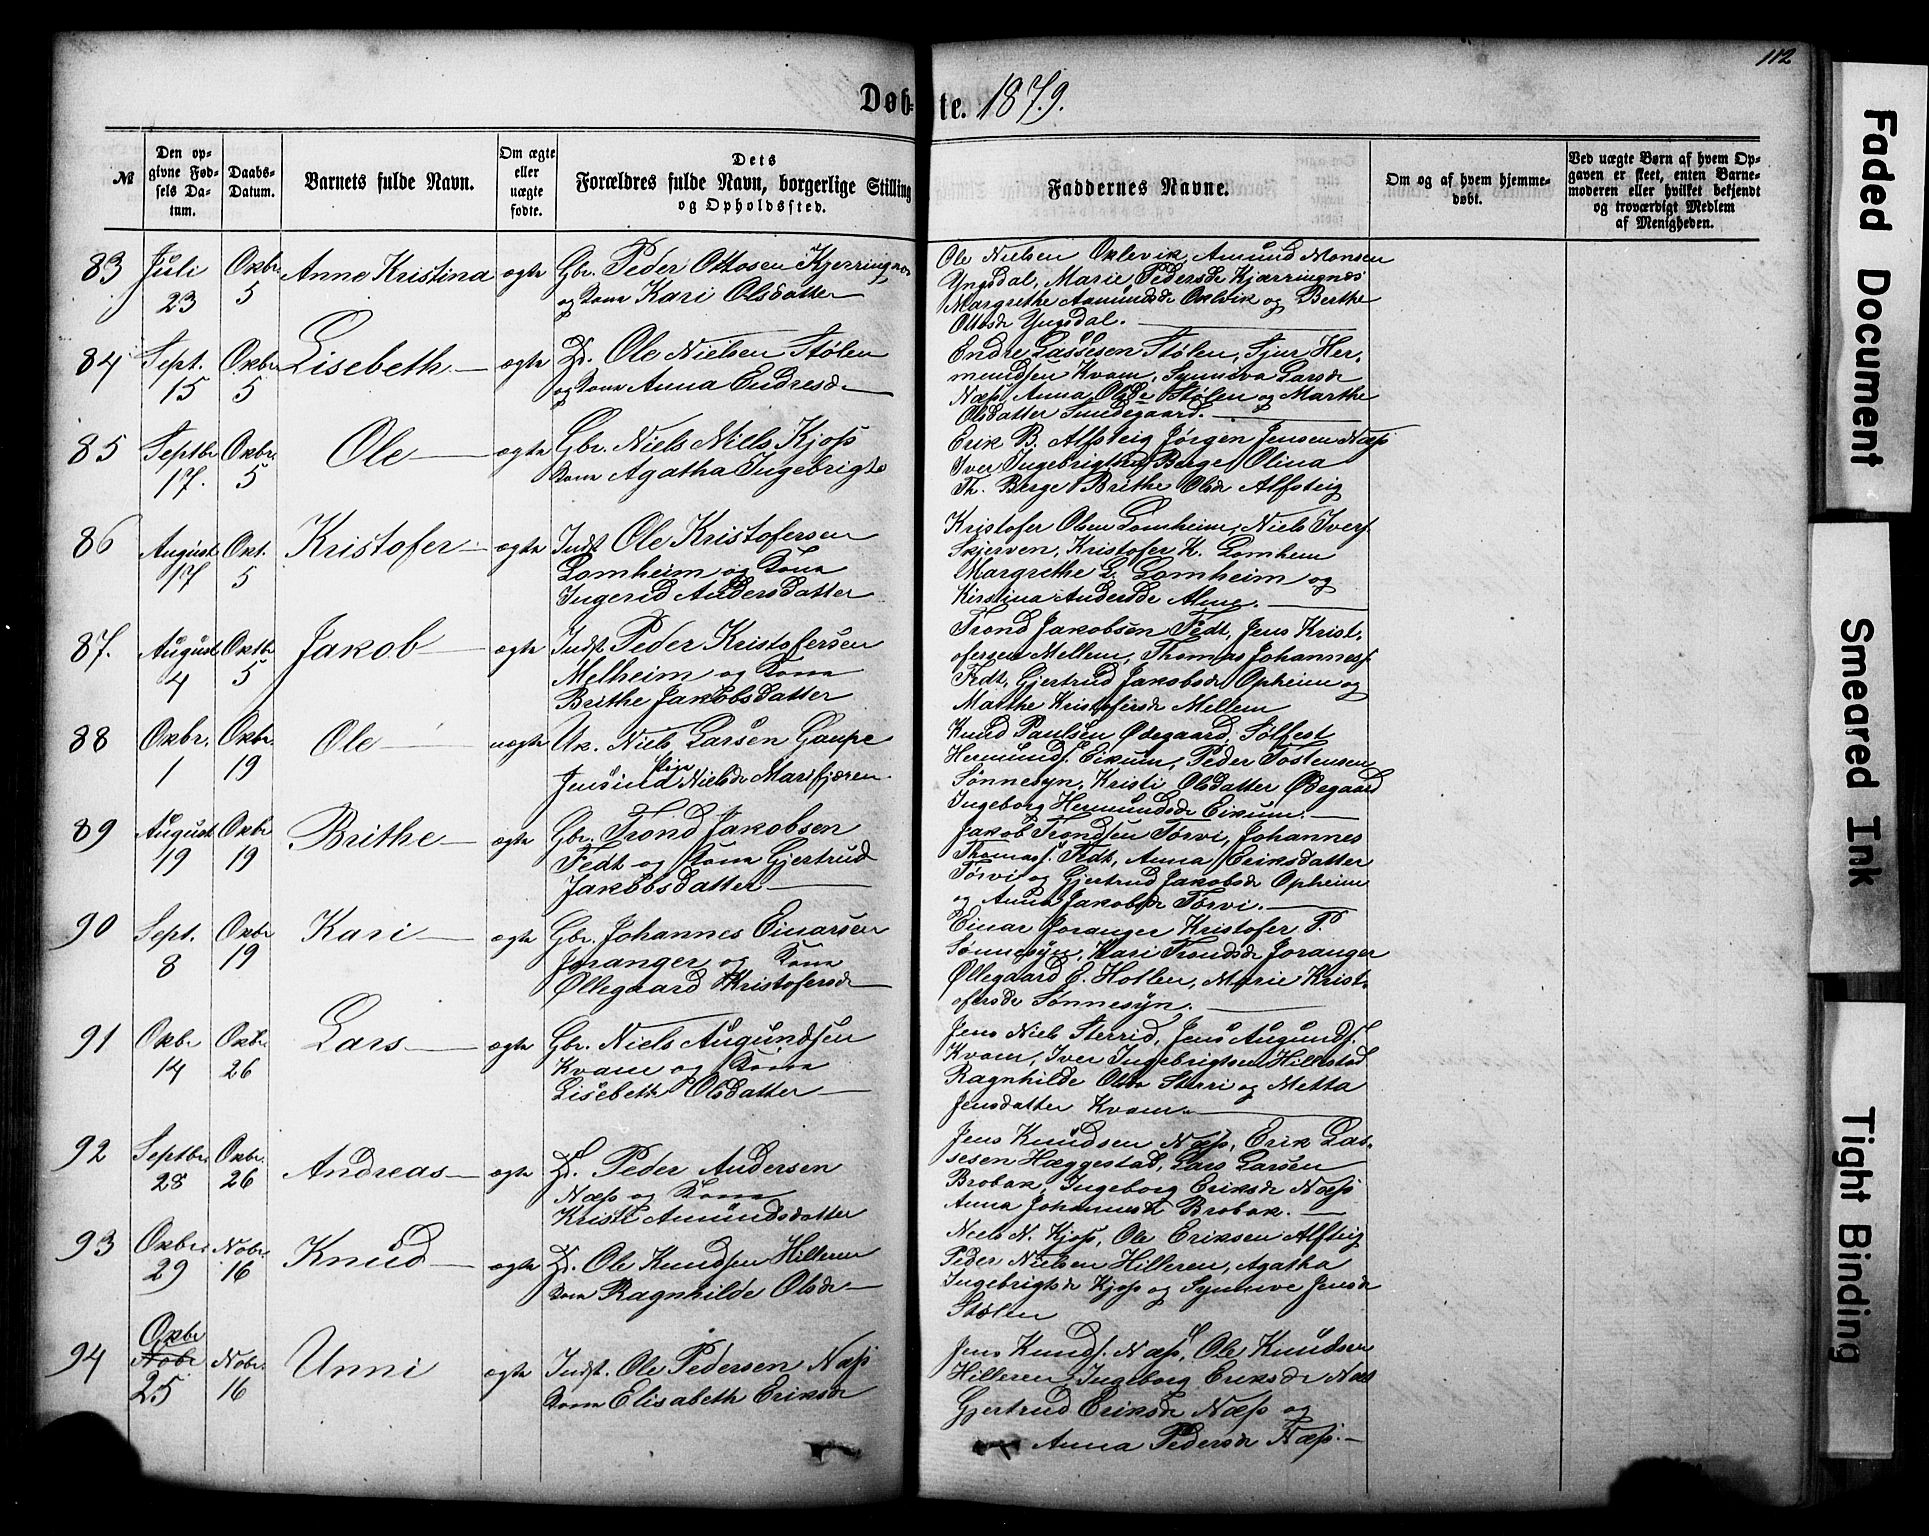 112
Døbte. 1879.
№
Den opgivne Fødsels Datum.
Daabs-Datum.
Barnets fulde Navn.
Om ægte eller uægte fødte.
Dets Forældres fulde Navn, borgerlige Stilling og Opholdssted.
Faddernes Navne.
Om og af hvem hjemmedøbt.
Ved uægte Børn af hvem Opgaven er skeet, enten Barnemoderen eller hvilket bekjendt og troværdigt Medlem af Menigheden.
83 Juli 23 Okbr 5 Anne Kristina ægte
Gbr. Peder Ottosen Kjerringnes
og Kona Kari Olsdatter
Ole Nielsen Oklevik, Amund Monsen
Yngsdal, Marie Pedersde Kjærringnæs
Margrethe Aamundsde Oklevik og Berthe
Ottosde Yngsdal.
84 Sept. 15 Okbr 5 Lisebeth ægte
Hd. Ole Nielsen Stølen
og Kona Anna Endresd.
Endre Lassesen Stølen, Sjur Her-
mundsen Kvam, Synneva Larsde
Næss, Anna Olsde Stølen og Marthe
Olsdatter Smidegaard.
85 Septbr 17. Okbr. 5 Ole ægte
Gbr. Niels Niels. Kjoss
Kona Agatha Ingebrigts
Erik B. Alfsteig Jørgen Jensen Næss
Iver Ingebrigtsen Berge, Olina
Th. Berge Brithe Olsde Alfsteig
86 August 17 Okt. 5 Kristofer ægte
Indst. Ole Kristofersen
Lomheim og Kona
Ingerid Andersdatter
Kristofer Olsen Lomheim, Niels Ivers.
Skjerven, Kristofer K. Lomheim
Margrethe G. Lomheim og
Kirstina Andersde Alme.
87. August 4 Oktb. 5 Jakob ægte
Indst. Peder Kristofersen
Melheim og Kona
Brithe Jakobsdatter
Trond Jakobsen Fedt, Jens Krist-
ofersen Mellem, Thomas Johanness.
Fedt, Gjertrud Jakobsde Opheim og
Marthe Kristofersde Mellem
88 Okbr. 1 Okbr. 19 Ole uægte
Uk. Niels Larsen Gaupe
Pige
Jensine Nielsde Marifjæren.
Knud Paulsen Ødegaard, Solfest
Hermunds. Eikum, Peder Tostensen
Sønnesyn, Kristi Olsdatter Ødegaard
Ingeborg Hermundsde Eikum.
89 August 19 Okbr 19 Brithe ægte
Gbr. Trond Jakobsen
Fedt og Kona Gjertrud
Jakobsdatter
Jakob Trondsen Tørvi, Johannes
Thomass. Fedt, Anna Eriksdatter
Tørvi og Gjertrud Jakobsde Opheim
og Anna Jakobsde Tørvi.
90 Sept. 8 Okbr 19 Kari ægte
Gbr. Johannes Einarsen
Joranger og Kona
Øllegaard Kristofersde
Einar Joranger Kristofer P.
Sønnesyn, Kari Trondsde Joranger
Øllegaard E. Hollen, Marie Krist-
ofersde Sønnesyn.
91 Okbr 14 Okbr. 26 Lars ægte
Gbr. Niels Augundsen
Kvam og Kona
Lisebeth Olsdatter
Jens Niels. Sterrid, Jens Augunds.
Kvam, Iver Ingebrigtsen Hillestad
Ragnhilde Olsde Sterri og Metta
Jensdatter Kvam.
92 Septbr. 28 Okbr. 26 Andreas ægte
Hd. Peder Andersen
Næss og Kona
Kristi Amundsdatter
Jens Knudsen Næss, Erik Las-
sesen Hæggestad, Lars Larsen
Brobak, Ingeborg Eriksde Næss
Anna Johannesde Brobak.
93 Okbr. 29 Nobr. 16 Knud ægte
Hd. Ole Knudsen Hilleren
Kona Ragnhilde Olsde
Niels N. Kjoss, Ole Eriksen Alfsteig
Peder Nielsen Hilleren, Agatha
Ingebrigtsde Kjoss og Synneve Jensde
Stølen
94 Okbr Nobr 25 Nobr. 16 Unni ægte
Indst. Ole Pedersen Næss
Kona Elisabeth Eriksde
Jens Knuds. Næss, Ole Knudsen
Hilleren, Ingeborg Eriksde Næs
Gjertrud Eriksde Næss og
Anna Pedersde Næss.
Faded Document
Smeared Ink
Tight Binding